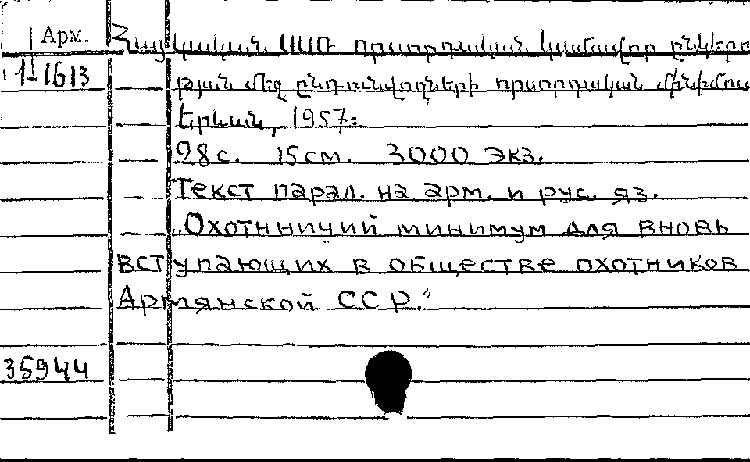 Арм. Հայկական ՍՍՌ որսորդական կամավոր ընկերու
1-1613 թյան մեջ ընդունվողների որսորդական մինիմում
Երևան, 1957։
98с. 15см. 3000 экз.
Текст парал. на арм. и рус. яз.
„Охотничий минимум для вновь
вступающих в общество охотников
Армянской ССР."
35944